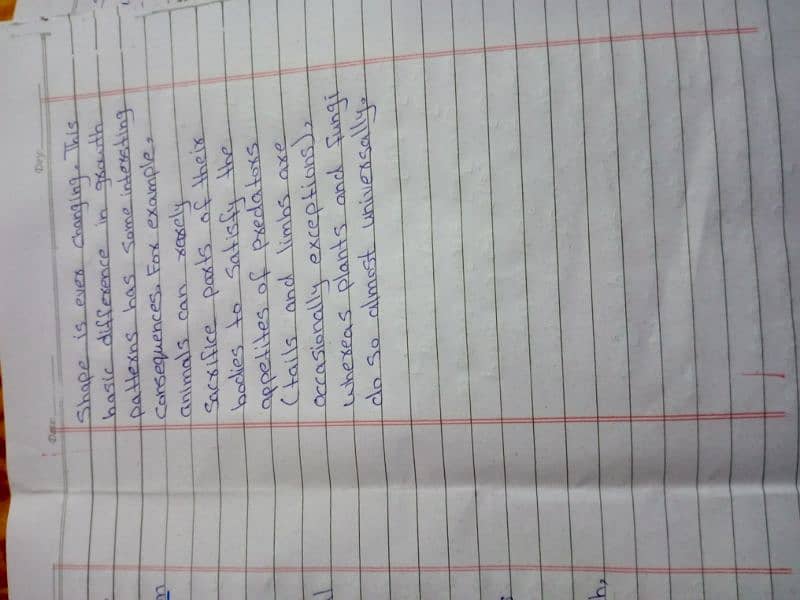 Shape is ever changing. This
basic difference in growth
patterns has some intersting
consequences. For example,
animals can rarely
sacrifice parts of their
bodies to satisfy the
appetites of predators
(tails and limbs are
occasionally exceptions),
whereas plants and fungi
do so almost universally.